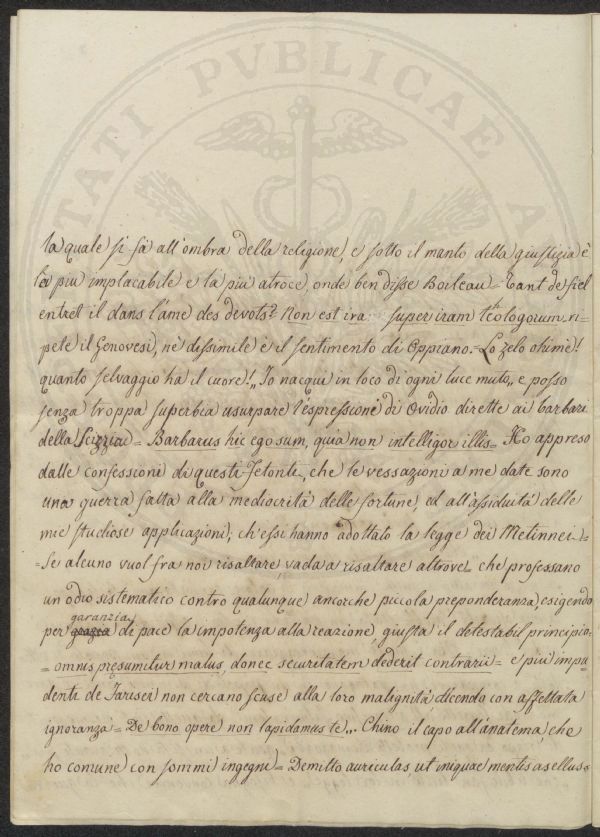 TATI PVBLICAE A
la quale si fà all'ombra della religione, e sotto il manto della giustizia è
la più implacabile e la più atroce, onde ben disse Boileau = Tant de fiel
entret il dans l'âme des devots? Non est ira super iram teologorum ri-
pete il Genovesi, nè dissimile è il sentimento di Oppiano. Lo zelo ohimè!
quanto selvaggio ha il cuore! „ Io nacqui in loco di ogni luce muto, e posso
senza troppa superbia usurpare l'espressione di Ovidio dirette ai barbari
della Scizzia = Barbarus hic ego sum, quia non intelligor illis = Ho appreso
dalle confessioni di questi Fetonti, che le vessazioni a me date sono
una guerra fatta alla mediocrità delle fortune, ed all'assiduità delle
mie studiose applicazioni; ch'essi hanno adottato la legge dei Metinnei =
= Se alcuno vuol fra noi risaltare, vada a risaltare altrove = che professano
un odio sistematico contro qualunque ancorche piccola preponderanza, esigendo
garanzia
per grazia di pace la impotenza alla reazione, giusta il detestabil principio =
= omnis presumitur malus, donec securitatem dederit contrarii = e più impu
denti de Farisei non cercano scuse alla loro malignità dicendo con affettata
ignoranza = De bono opere non lapidamus te... Chino il capo all'anatema, che
ho comune con sommi ingegni = Demitto auriculas, ut iniquae mentis asellus =